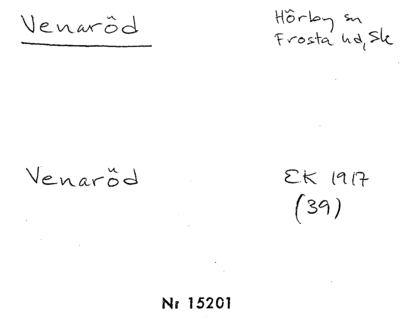 Venaröd
Hörby sn
Frosta hd, Sk
Venaröd
EK 1917
(39)
Nr 15201